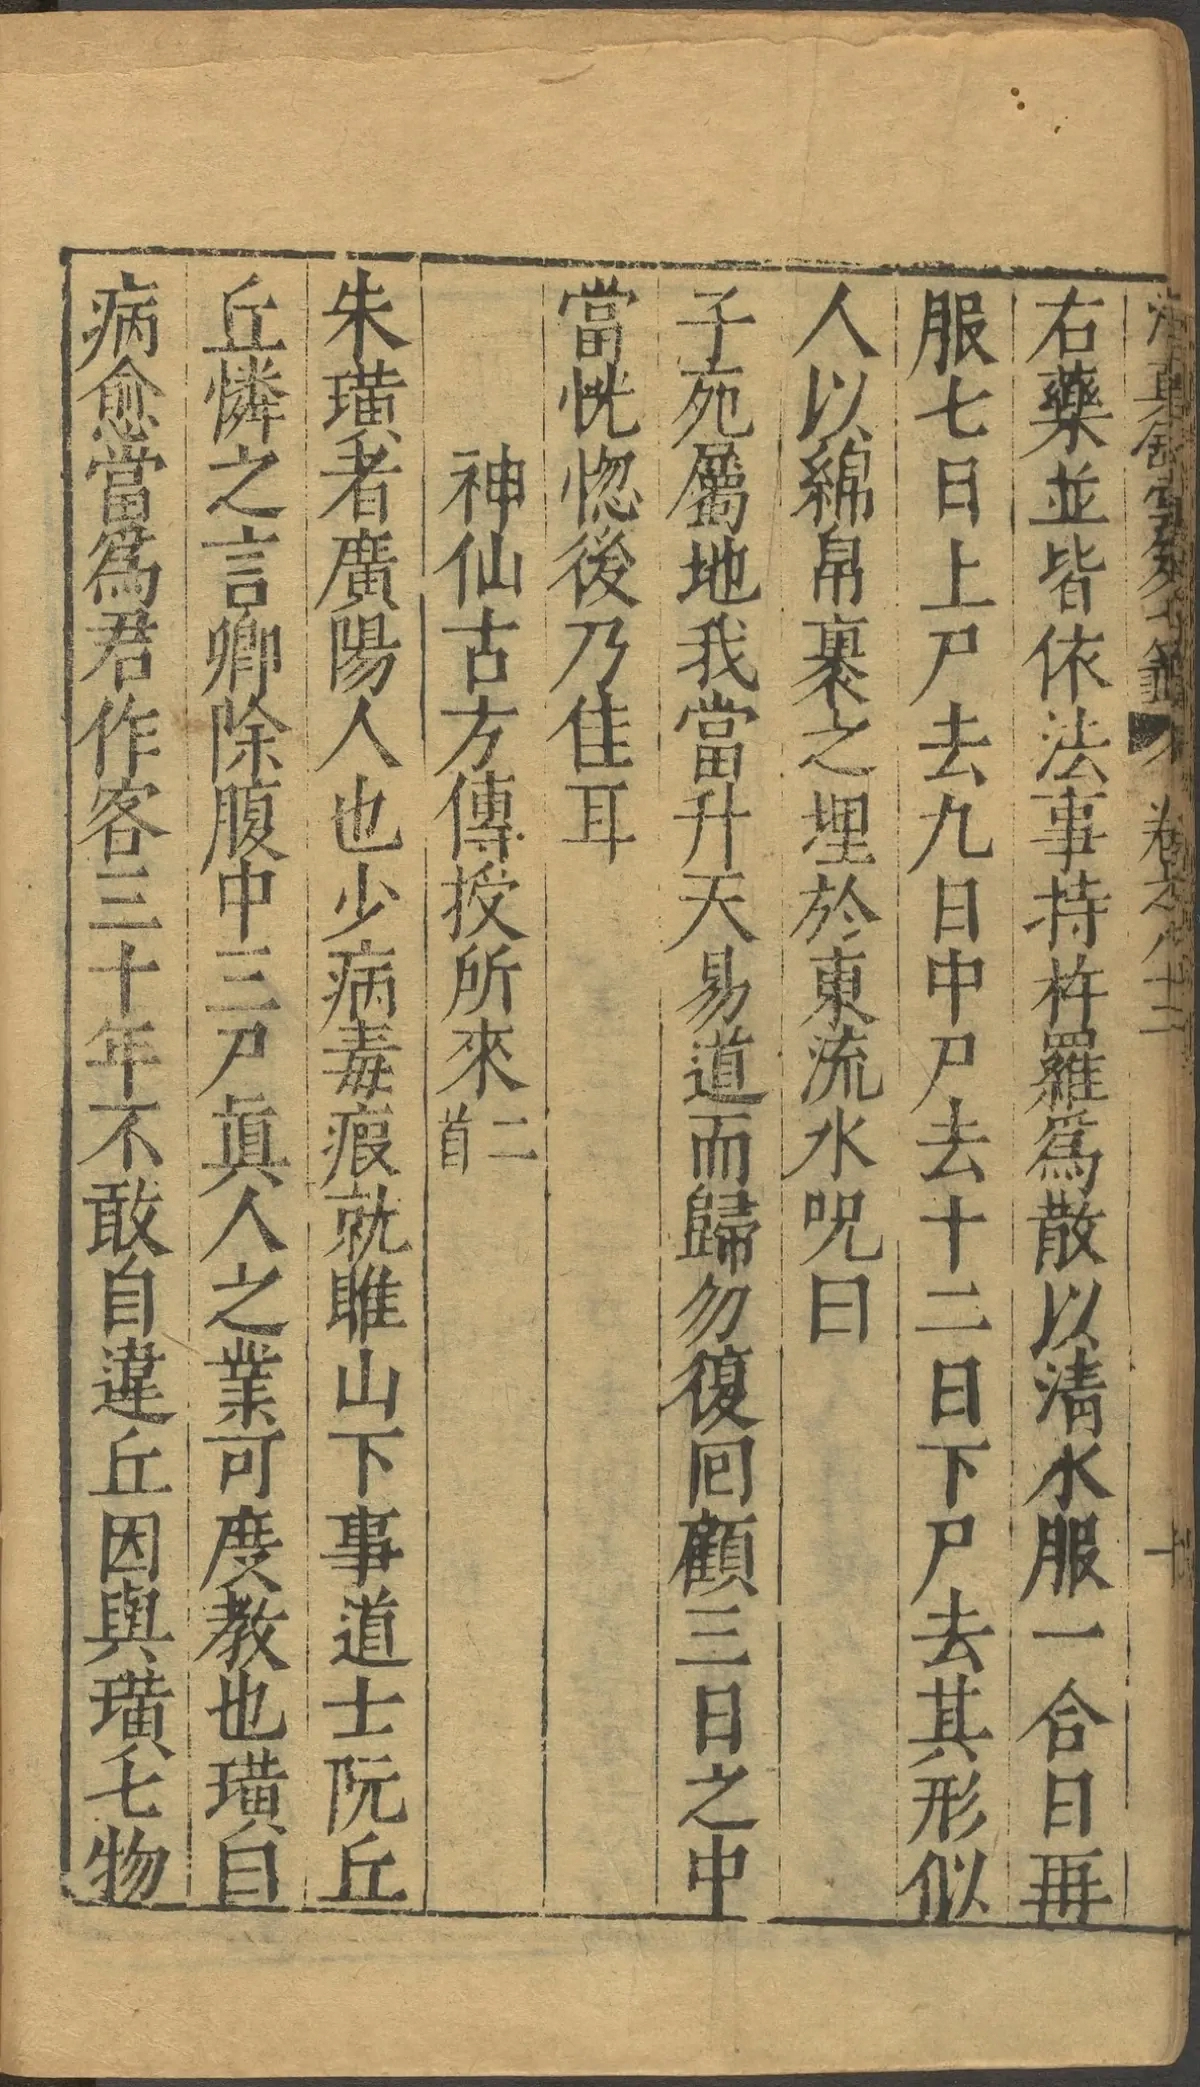 右藥並皆依法事持杵羅爲散以清水服一合日再
服七日上尸去九日中尸去十二日下尸去其形似
人以綿帛裹之埋於東流水呪曰
子死屬地我當升天易道而歸勿復回顧三日之中
當恍惚後乃佳耳
神仙古方傳授所來二首
朱璜者廣陽人也少病毒瘕就睢山下事道士阮丘
丘憐之言卿除腹中三尸眞人之業可度教也璜自
病愈當爲君作客三十年不敢自違丘因與璜七物